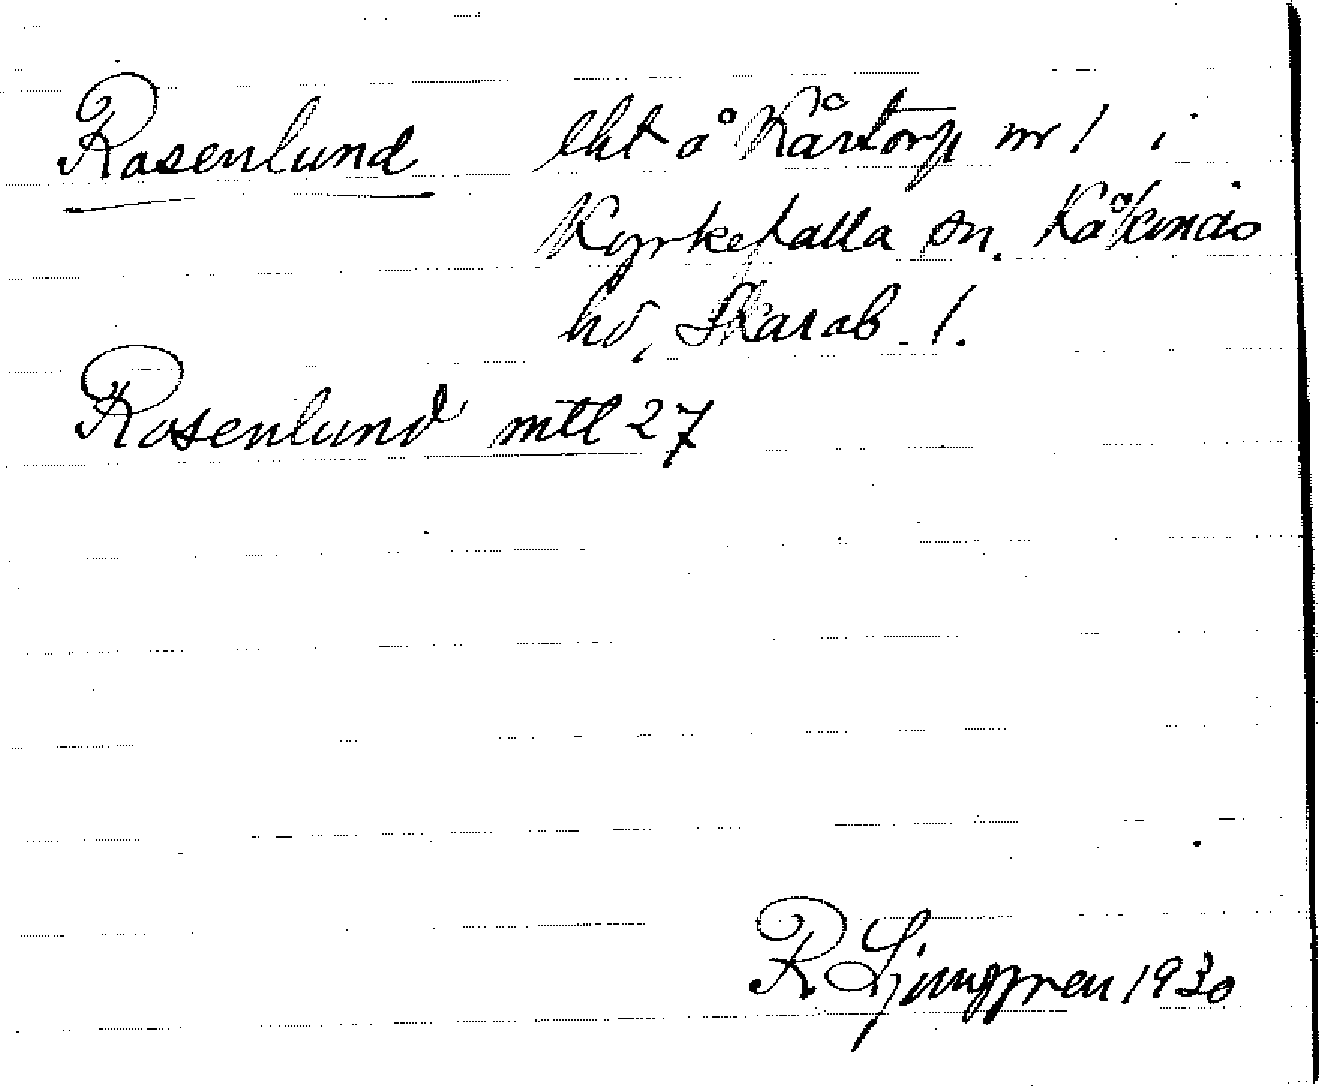 Rosenlund lht å Kårtorp nr 1 i
Kyrkefalla sn. Kåkinds
hd, Skarab. l.
Rosenlund mtl 27
R Ljunggren 1930